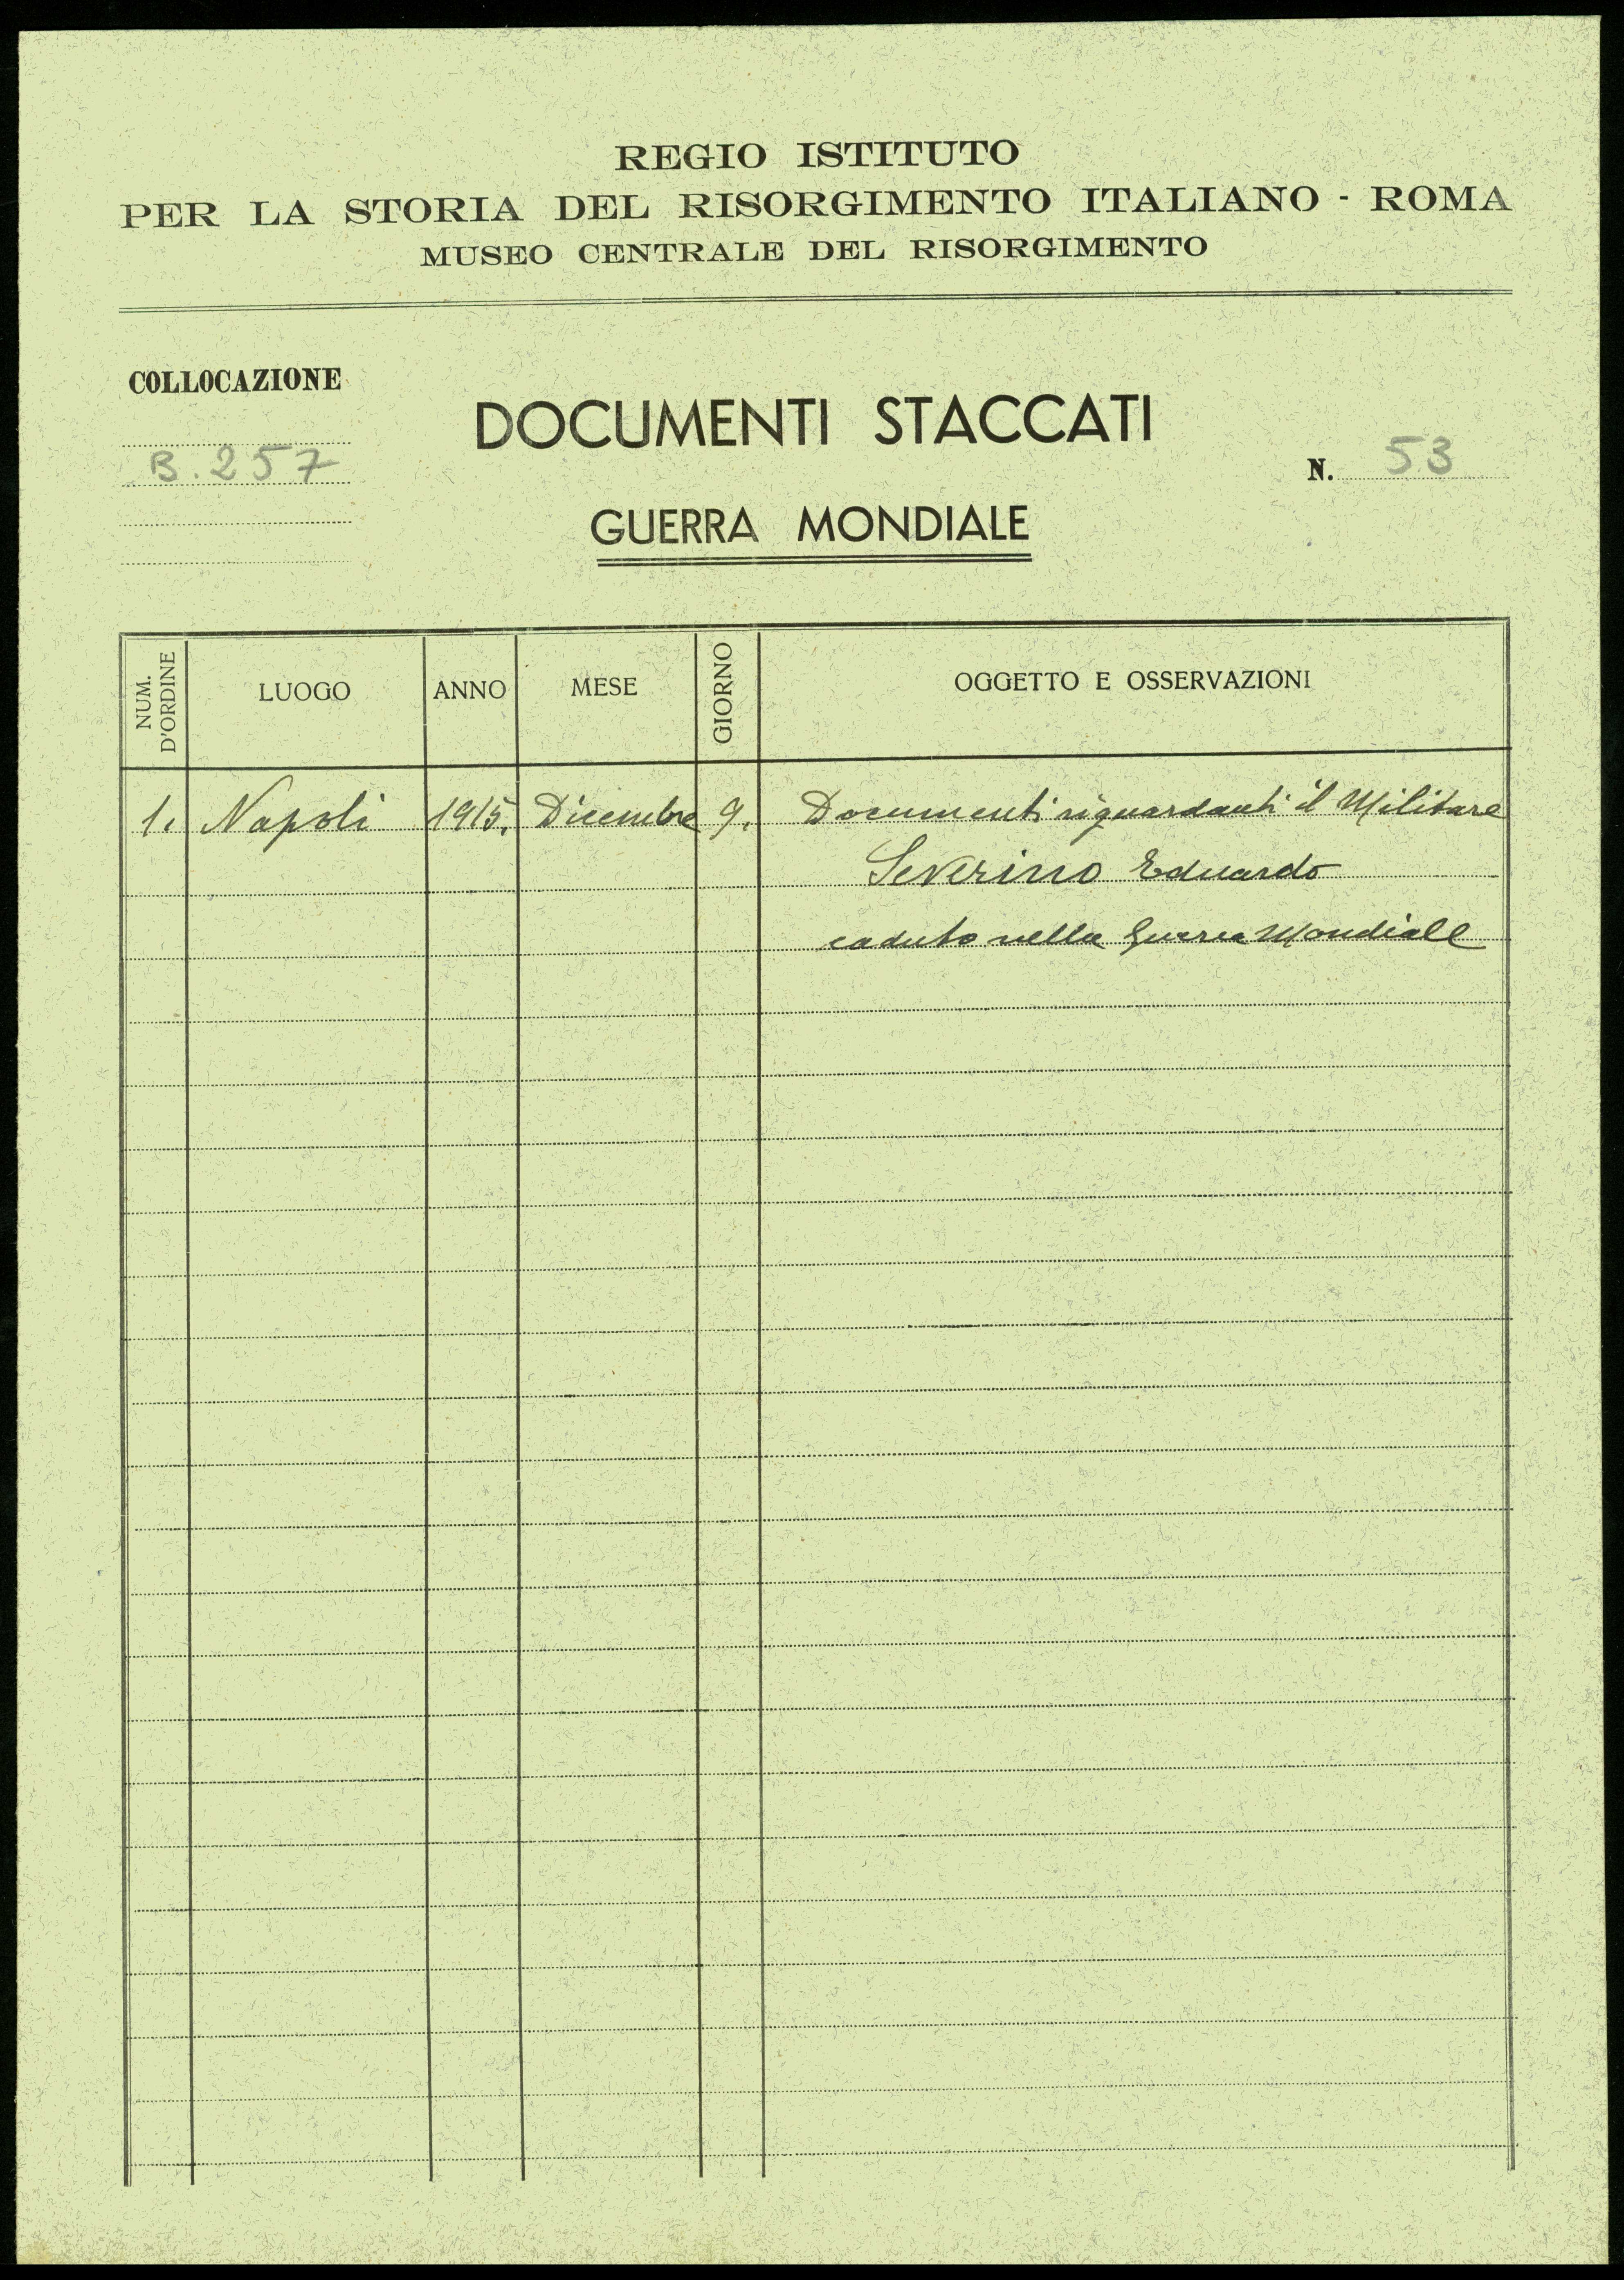 REGIO ISTITUTO
PER LA STORIA DEL RISORGIMENTO ITALIANO - ROMA
MUSEO CENTRALE DEL RISORGIMENTO
COLLOCAZIONE
B. 257
DOCUMENTI STACCATI
N. 53
GUERRA MONDIALE
NUM. D'ORDINE LUOGO ANNO MESE GIORNO OGGETTO E OSSERVAZIONI
1. Napoli 1915. Dicembre 9. Documenti riguardanti il Militare
Severino Eduardo
caduto nella Guerra Mondiale